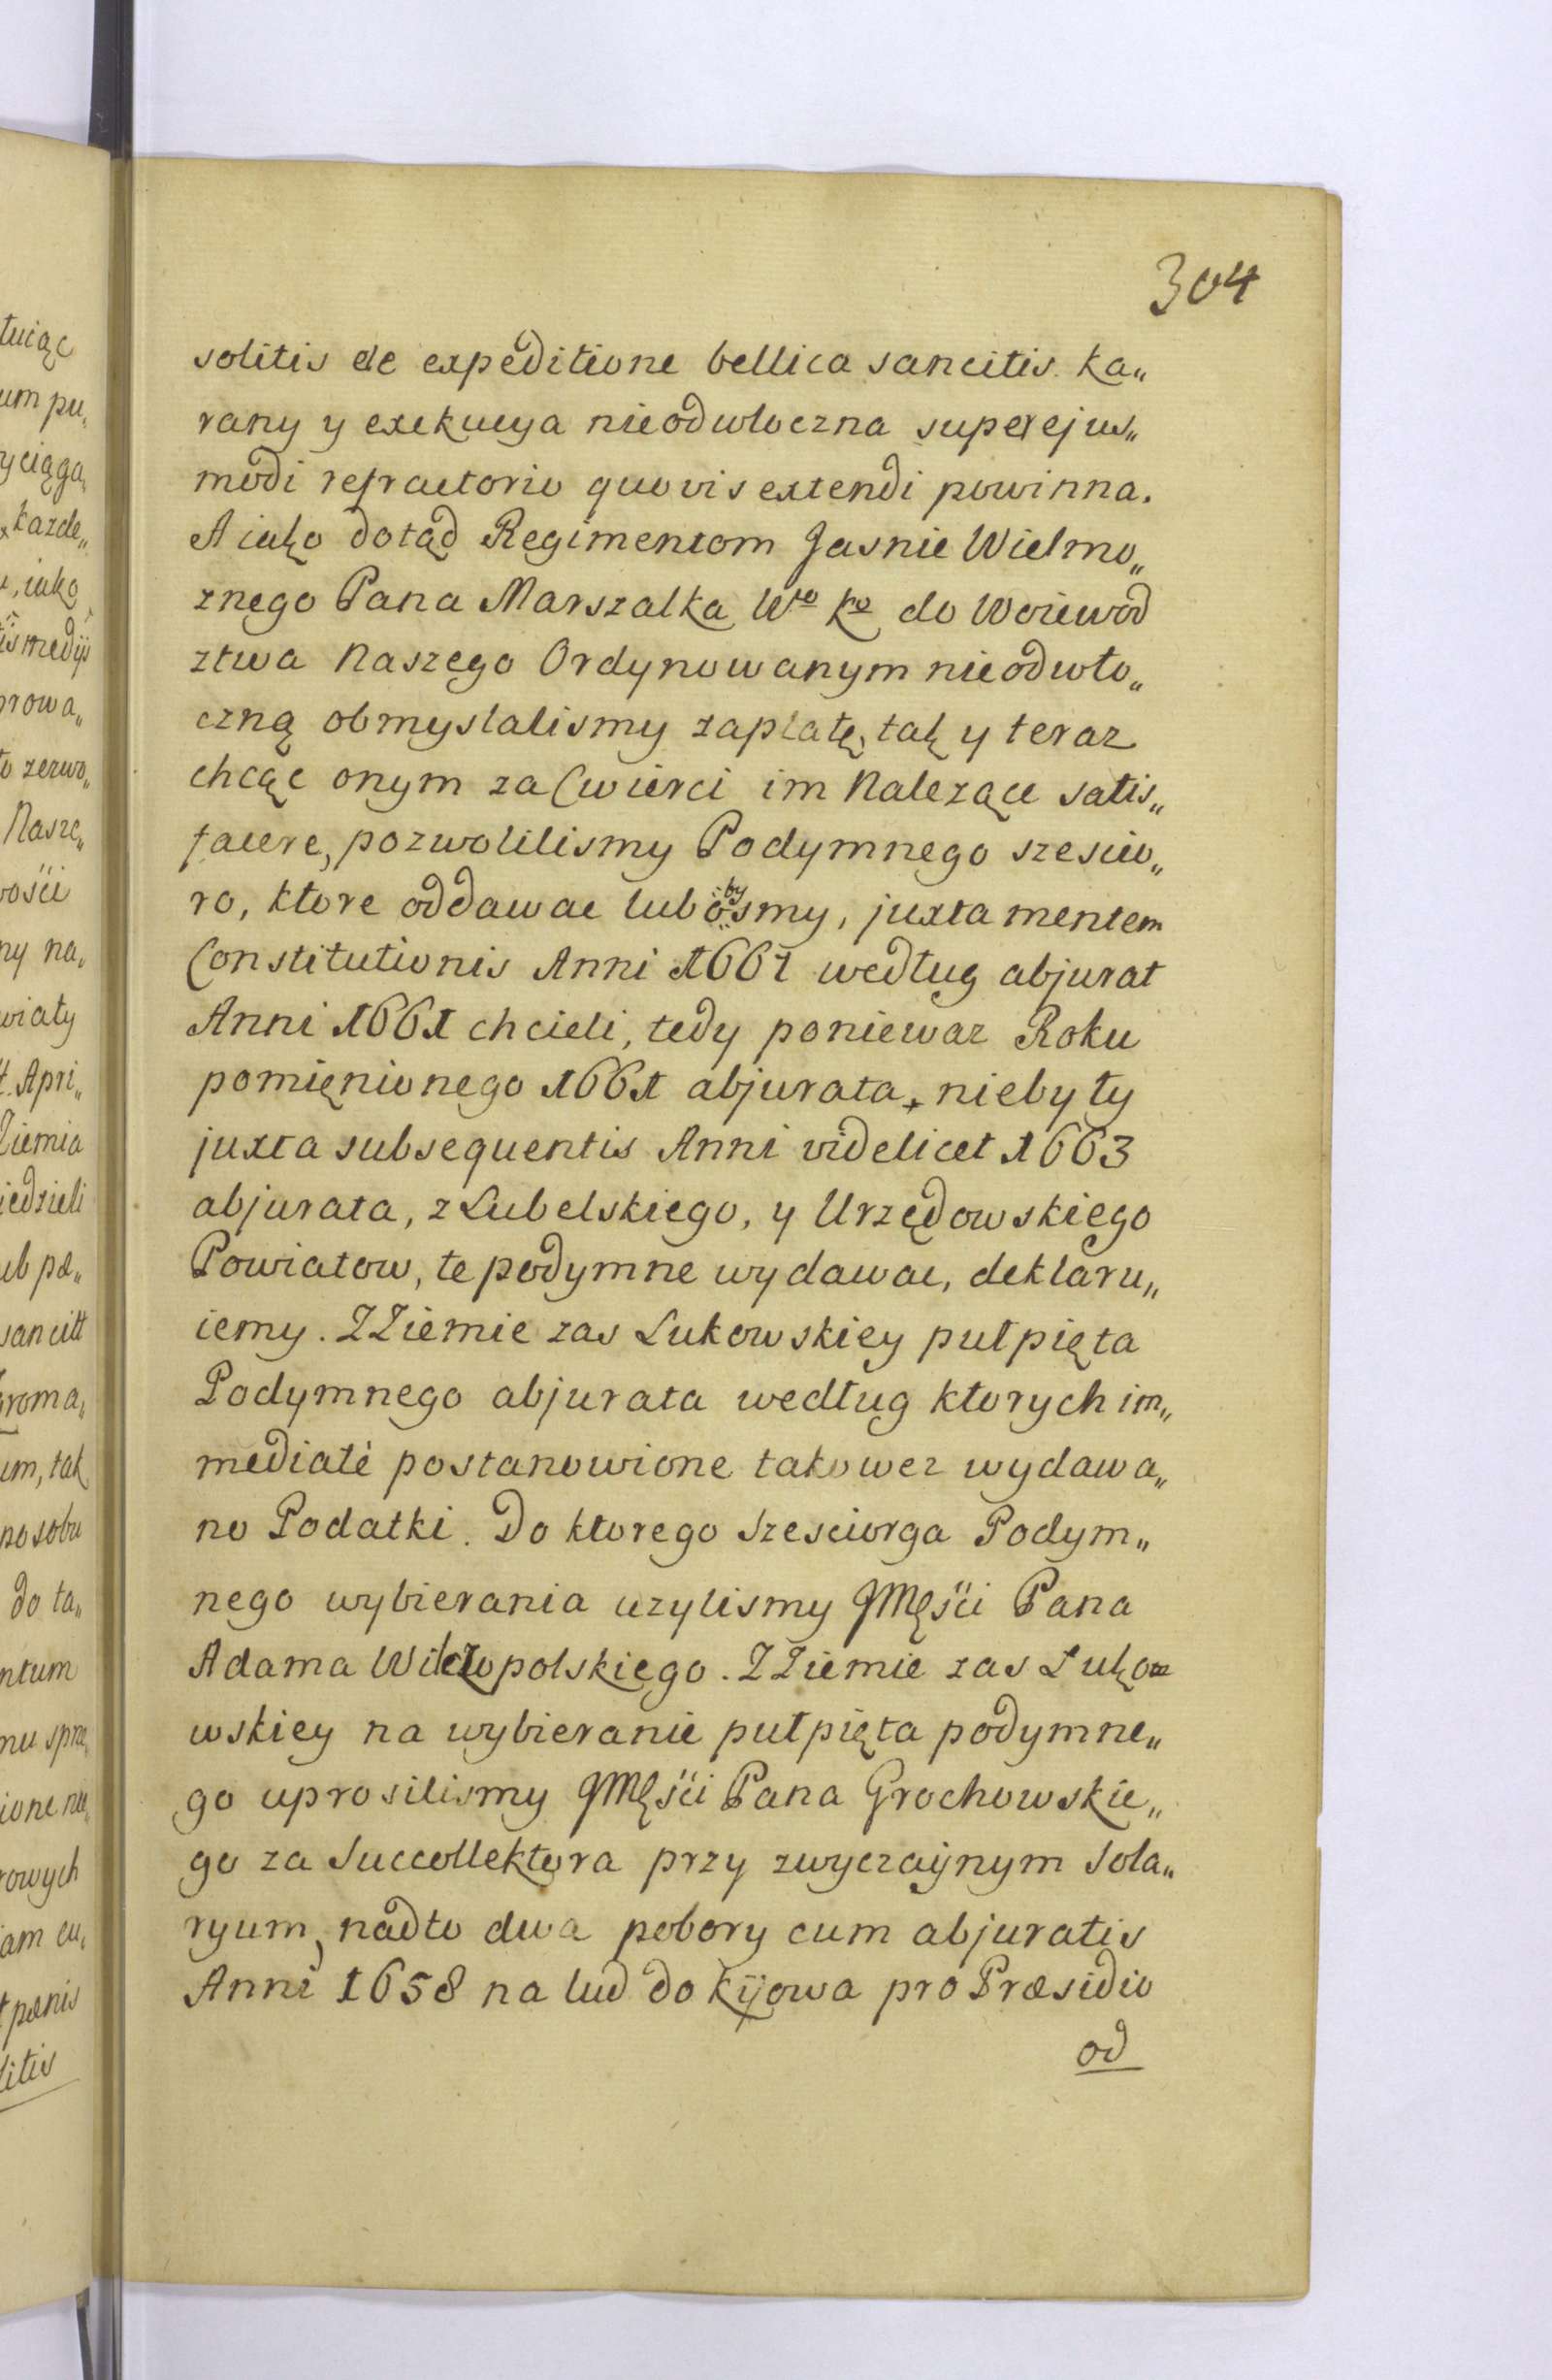 304
solitis de expeditione bellica sancitis ka„
rany y exekucya nieodwłoczna super ejus„
modi refractorio quovis extendi powinna.
A iako dotąd Regimentom Jasnie Wielmo„
znego Pana Marszalka Wgo Ko do Woiewod
ztwa Naszego Ordynowanym nieodwło„
czną obmyslalismy zaplatę, tak y teraz
chcąc onym za Cwierci im Nalezące satis„
facere, pozwolilismy Podymnego szescio„
ro, ktore oddawac lubobysmy, juxta mentem
Constitutionis Anni 1661 według abjurat
Anni 1661 chcieli, tedy poniewaz Roku
pomięnionego 1661 abjurata + niebyły
juxta subsequentis Anni videlicet 1663
abjurata, z Lubelskiego, y Urzędowskiego
Powiatow, te podymne wydawac, deklaru„
iemy. Z Ziemie zas Lukowskiey pułpięta
Podymnego abjurata według ktorych im„
mediatè postanowione takowez wydawa„
no Podatki. Do ktorego Szesciorga Podym„
nego wybierania uzylismy JMści Pana
Adama Wilczopolskiego. Z Ziemie zas Luko
wskiey na wybieranie pułpięta podymne„
go uprosilismy JMści Pana Grochowskie„
go za Succollektora przy zwyczaijnym Sola„
ryum, nadto dwa pobory cum abjuratis
Anni 1658 na lud do Kijowa pro Præsidio
od
tuiąc
um pu„
yciąga„
kazde„
iako
is medijs
prowa„
to zezwo„
Nasze„
ości
ny na„
wiały
Apri„
Ziemia
iedzieli
ub pæ„
sancitt
roma„
um, tak
posobu
do ta„
ntum
mu spra„
ione na„
rowych
iam cu„
pænis
litis